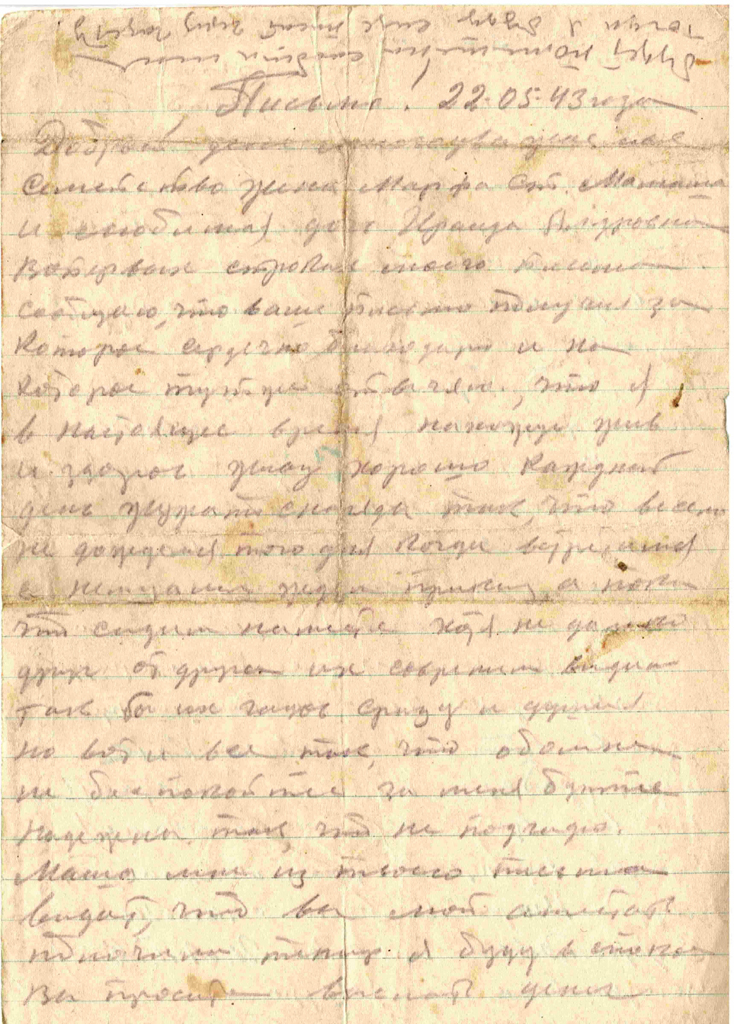 Письмо! 22-05-43 года
Добрый день многоуважаемое
Семейство жена Марфа Мамаша
и любимая дочь Ираида
Вопервых строках моего письма
сообщаю, что ваше письмо получил за
которое сердечно благодарю и на
которое тутже отвечаю, что я
в настоящее время нахожусь жив
и здоров живу хорошо каждый
день снаряды так, что
не дождемся того дня когда встретимся
с немцами ждем приказ, а пока
что сидим на месте хотя не далеко
друг от друга их видим
так бы их гадов сразу и душил
но вот и все так, что обо мне
не беспокойтесь за меня будьте
надежны так, что не подгажу.
мне из твоего письма
видать, что вы мой аттестат
получили теперь я буду
Вы просите выслать денег